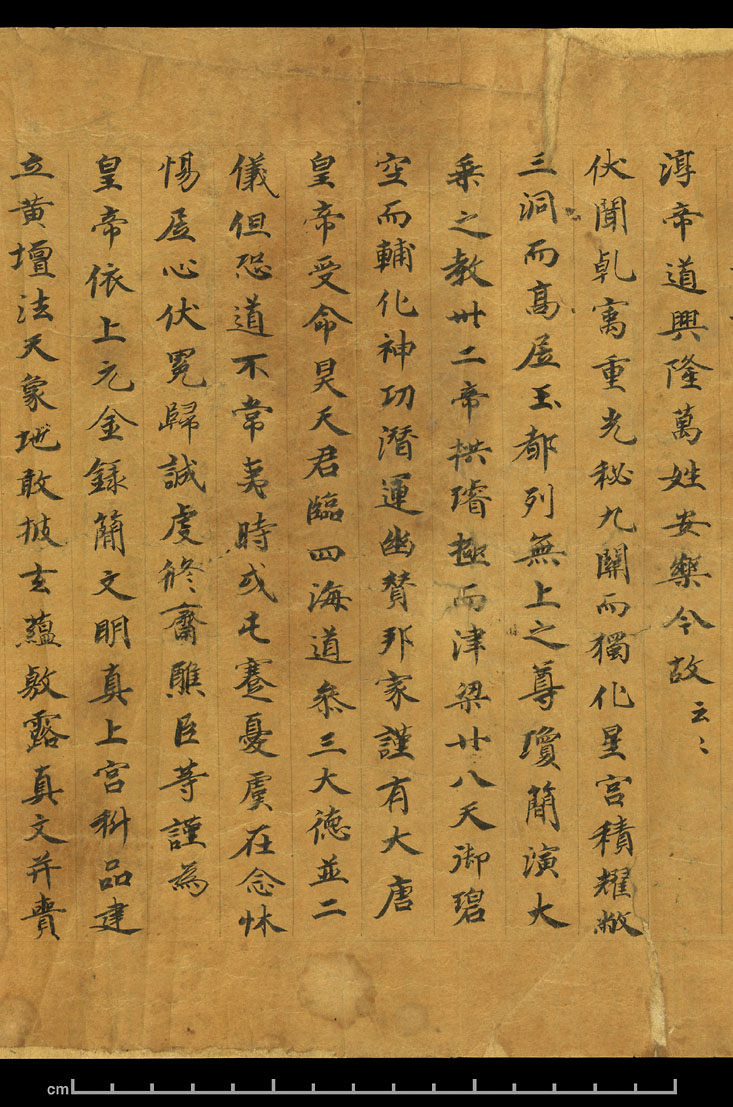 淳帝道興隆萬姓安樂今故云〻
伏聞乹寓重光秘九關而獨化星宫積耀敞
三洞而髙居玉都列無上之尊瓊蕳演大
乗之教卅二帝拱璿極而津梁廿八天御碧
空而輔化神功潛運幽賛邦家謹有大唐
皇帝受命昊天君臨四海道叅三大徳並二
儀但恐道不常夷時或屯蹇憂虞在念怵
惕居心伏冕歸誠虔修齋醮臣等謹為
皇帝依上元金籙蕳文明真上宫科品建
立黄壇法天象地敢披玄藴敷露真文并賫
cm